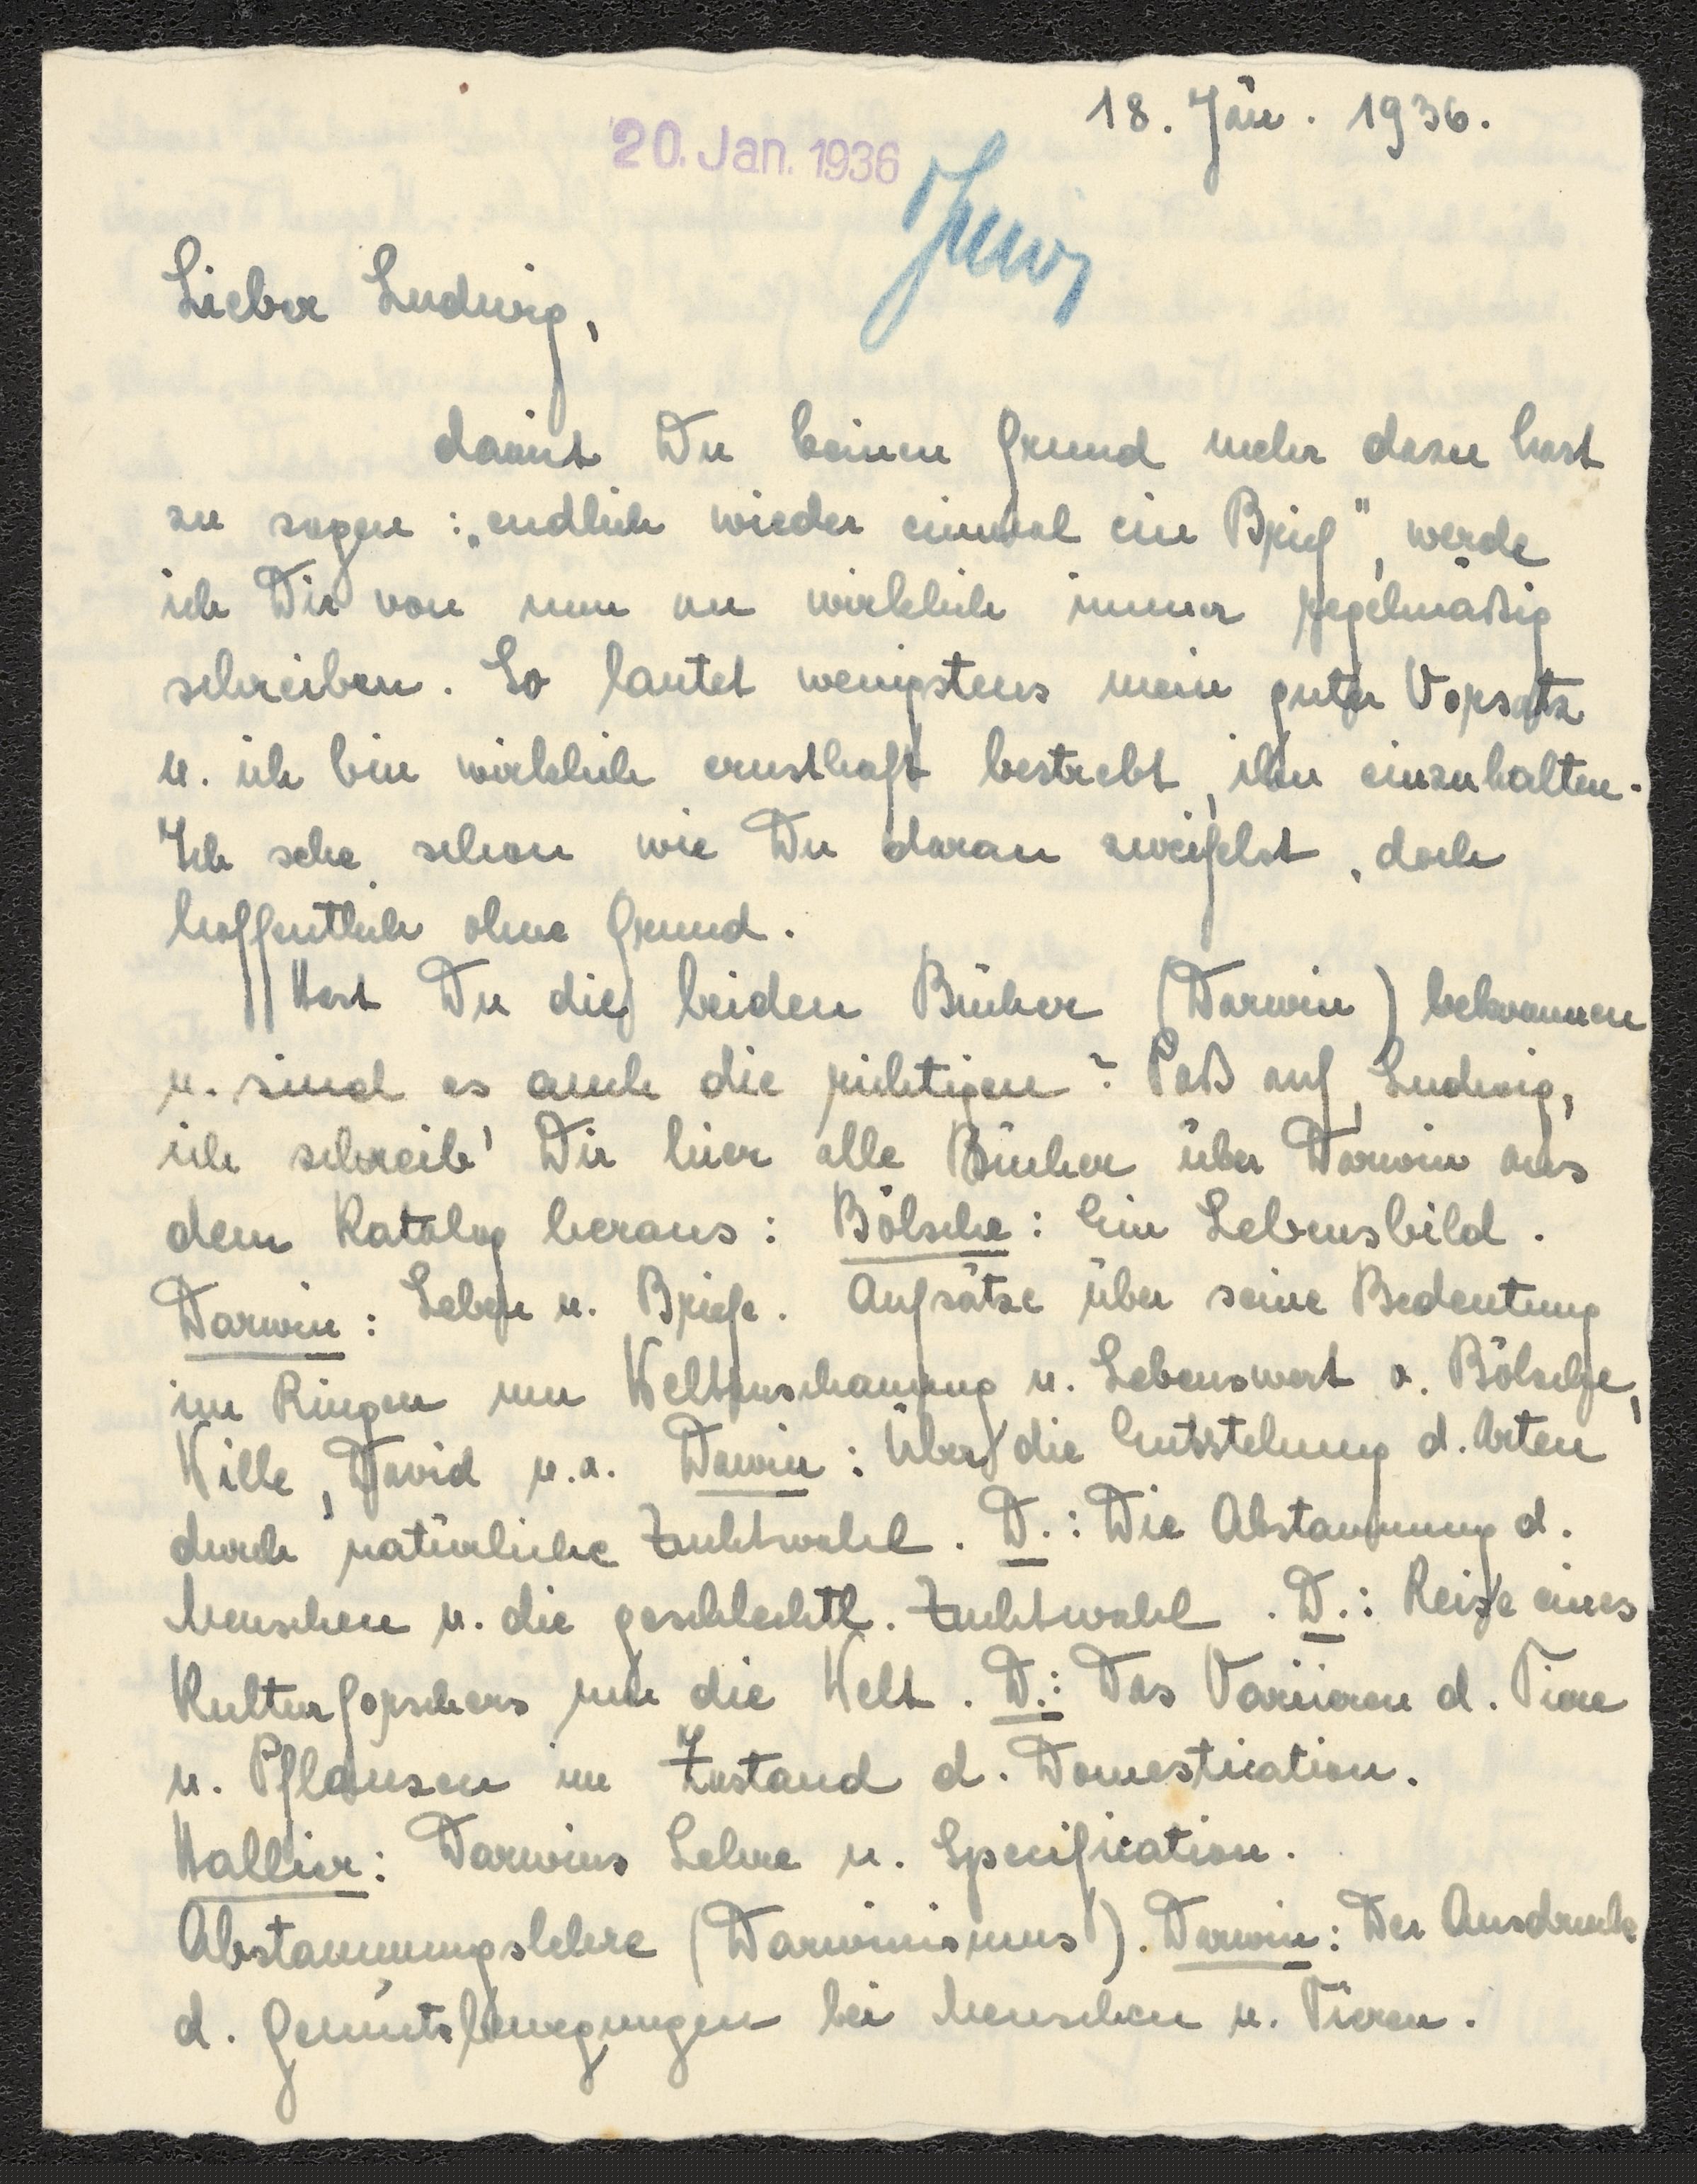 18. Jän. 1936.
20. Jan. 1936
Lieber Ludwig,
damit Du keinen Grund mehr dazu hast
zu sagen: „endlich wieder einmal ein Brief", werde
ich Dir von nun an wirklich immer regelmäßig
schreiben. So lautet wenigstens mein guter Vorsatz
u. ich bin wirklich ernsthaft bestrebt, ihn einzuhalten.
Ich sehe schon wie Du daran zweifelst, doch
hoffentlich ohne Grund.
Hast Du die beiden Bücher (Darwin) bekommen
u. sind es auch die richtigen? Paß auf, Ludwig,
ich schreib' Dir hier alle Bücher über Darwin aus
dem Katalog heraus: Bölsche: Ein Lebensbild.
Darwin: Leben u. Briefe. Aufsätze über seine Bedeutung
im Ringen um Weltanschauung u. Lebenswert v. Bölsche,
Wille, David u.a. Dawin: Über die Entstehung d. Arten
durch natürliche Zuchtwahl. D.: Die Abstammung d.
Menschen u. die geschlechtl. Zuchtwahl. D.: Reise eines
Kulturforschers um die Welt. D.: Das Variieren d. Tiere
u. Pflanzen im Zustand d. Domestication.
Hallier: Darwins Lehre u. Specification.
Abstammungslehre (Darwinismus). Darwin: Der Ausdruck
d. Gemütsbewegungen bei Menschen u. Tieren.